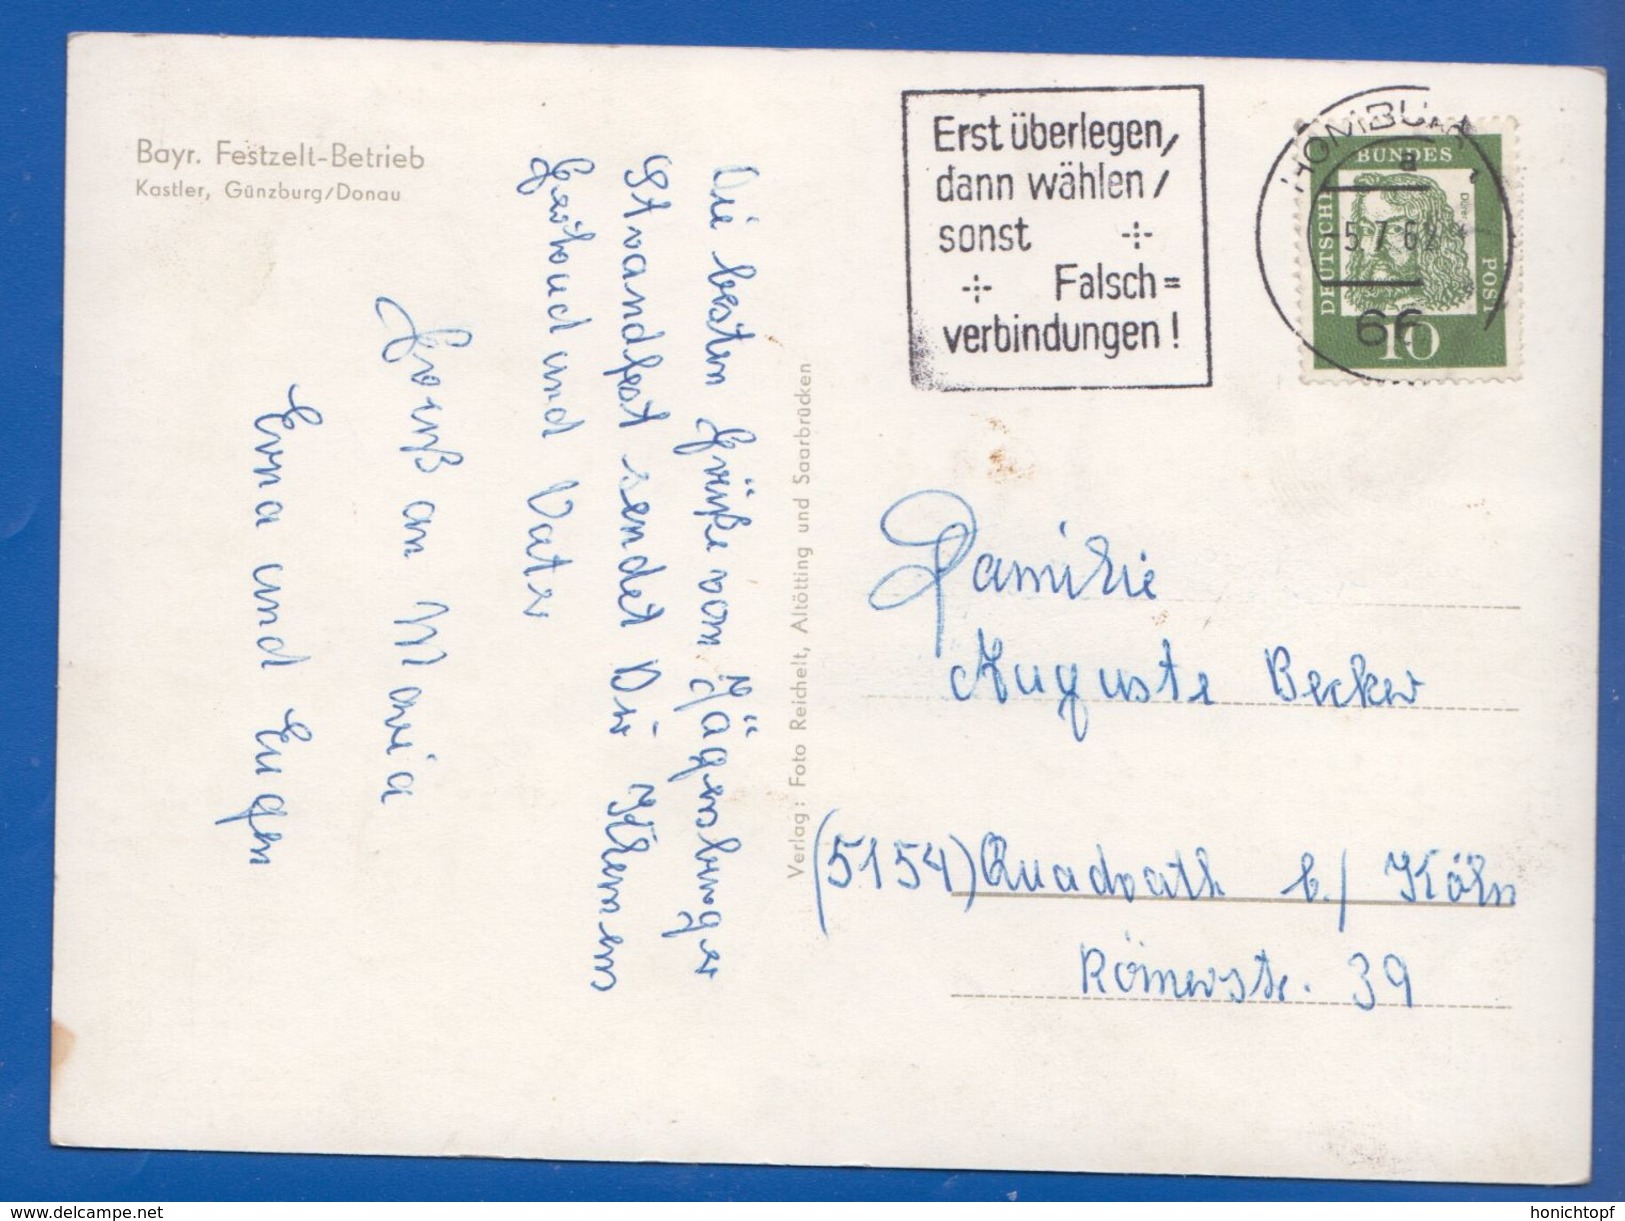 Bayr. Festzelt-Betrieb
Kastler, Günzburg/Donau
Erst überlegen,
dann wählen,
sonst
Falsch=
verbindungen!
HOMBURG
a
-5.7.62
66
DEUTSCHE
BUNDES
POST
Dürer
10
Die besten Grüße vom Jägersburger
Strandfest sendet Dir Klemens
Gertrud und Vater
Gruß an Maria
Erna und Eugen
Verlag: Foto Reichelt, Altötting und Saarbrücken
Familie
Auguste Becker
(5154) Quadrath b./ Köln
Römerstr. 39
delcampe.net
honichtopf